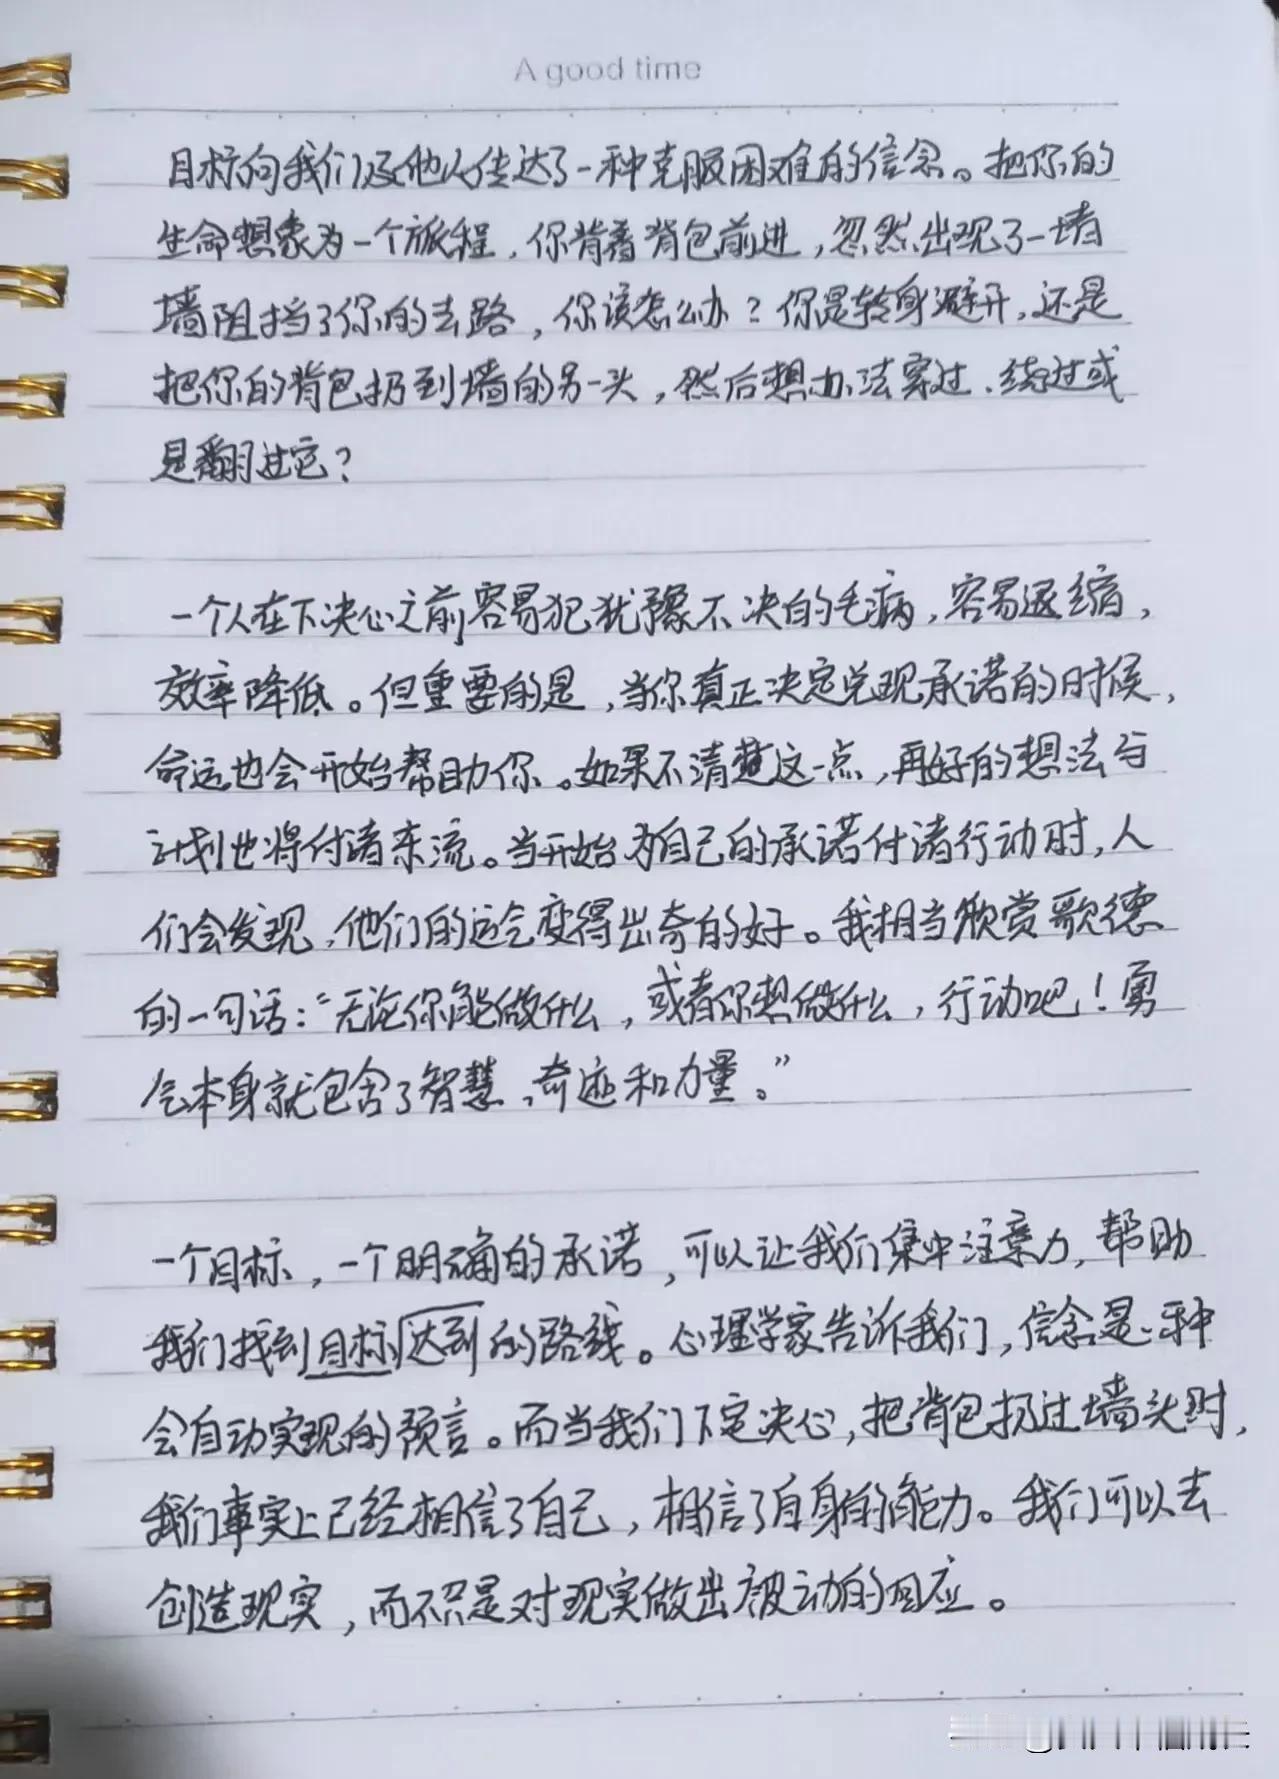 A good time
目标向我们及他人传达了一种克服困难的信念。把你的
生命想象为一个旅程，你背着背包前进，忽然出现了一堵
墙阻挡了你的去路，你该怎么办？你是转身避开，还是
把你的背包扔到墙的另一头，然后想办法穿过、绕过或
是翻过它？
一个人在下决心之前容易犯犹豫不决的毛病，容易退缩，
效率降低。但重要的是，当你真正决定兑现承诺的时候，
命运也会开始帮助你。如果不清楚这一点，再好的想法与
计划也将付诸东流。当开始为自己的承诺付诸行动时，人
们会发现，他们的运气变得出奇的好。我相当欣赏歌德
的一句话：“无论你能做什么，或者你想做什么，行动吧！勇
气本身就包含了智慧、奇迹和力量。”
一个目标，一个明确的承诺，可以让我们集中注意力，帮助
我们找到目标达到的路线。心理学家告诉我们，信念是一种
会自动实现的预言。而当我们下定决心，把背包扔过墙头时，
我们事实上已经相信了自己，相信了自身的能力。我们可以去
创造现实，而不只是对现实做出被动的回应。